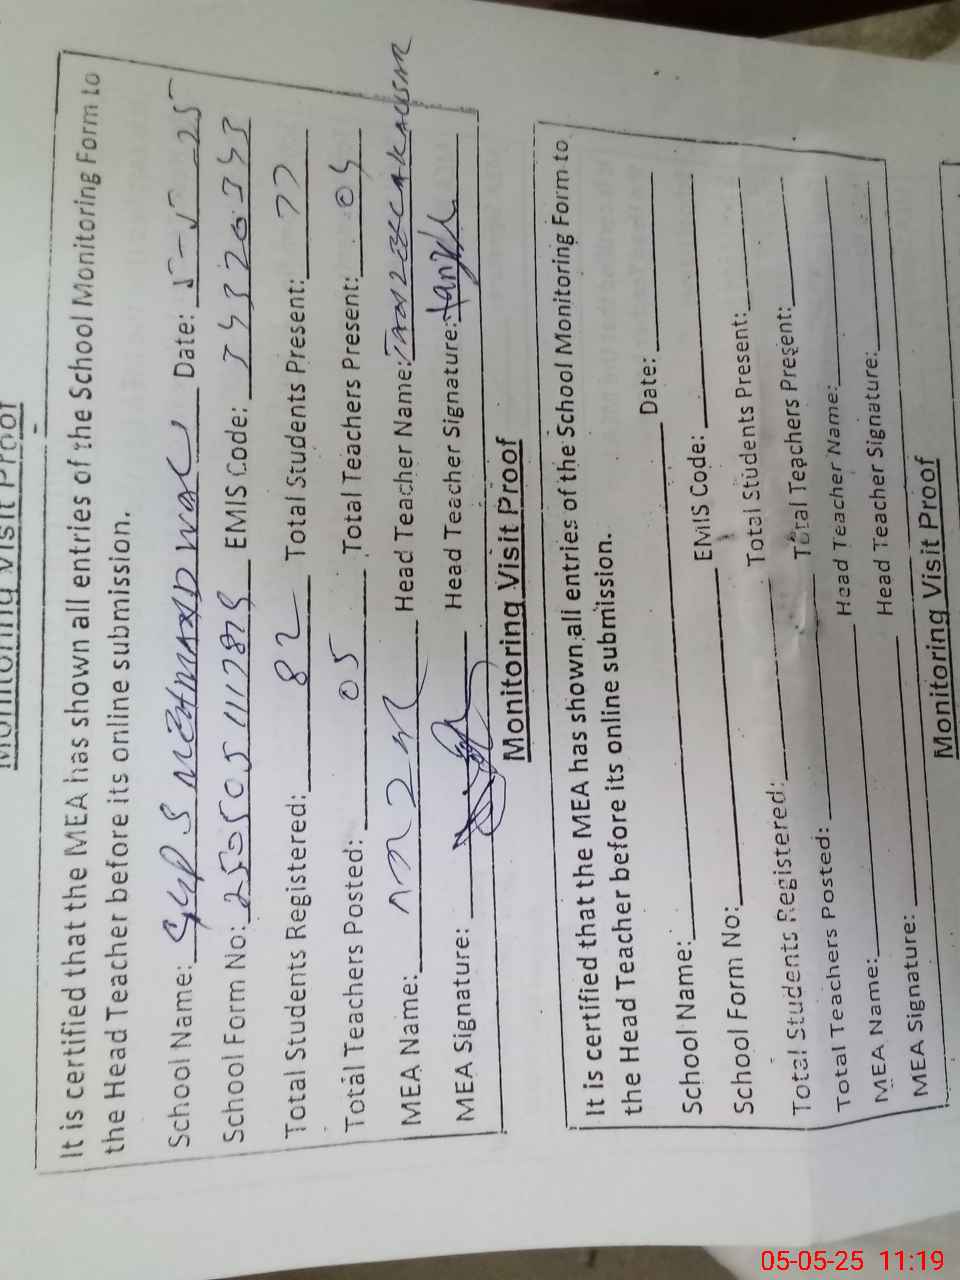 Monitoring Visit Proof
It is certified that the MEA has shown all entries of the School Monitoring Form to
the Head Teacher before its online submission.
School Name: Date: 5-5-25
School Form No: EMIS Code:
Total Students Registered: 82 Total Students Present: 77
Total Teachers Posted: 05 Total Teachers Present: 04
MEA Name: Head Teacher Name:
MEA Signature: Head Teacher Signature:
Monitoring Visit Proof
It is certified that the MEA has shown all entries of the School Monitoring Form to
the Head Teacher before its online submission.
School Name: Date:
School Form No: EMIS Code:
Total Students Registered: Total Students Present:
Total Teachers Posted: Total Teachers Present:
MEA Name: Head Teacher Name:
MEA Signature: Head Teacher Signature:
Monitoring Visit Proof
05-05-25 11:19